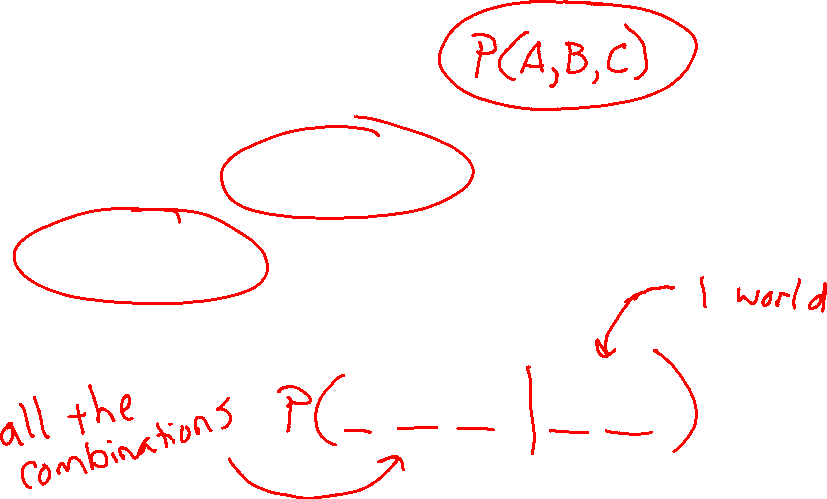 P(A,B,C)
1 world
all the
combinations
P(_ _ _ _ | _ _ _)